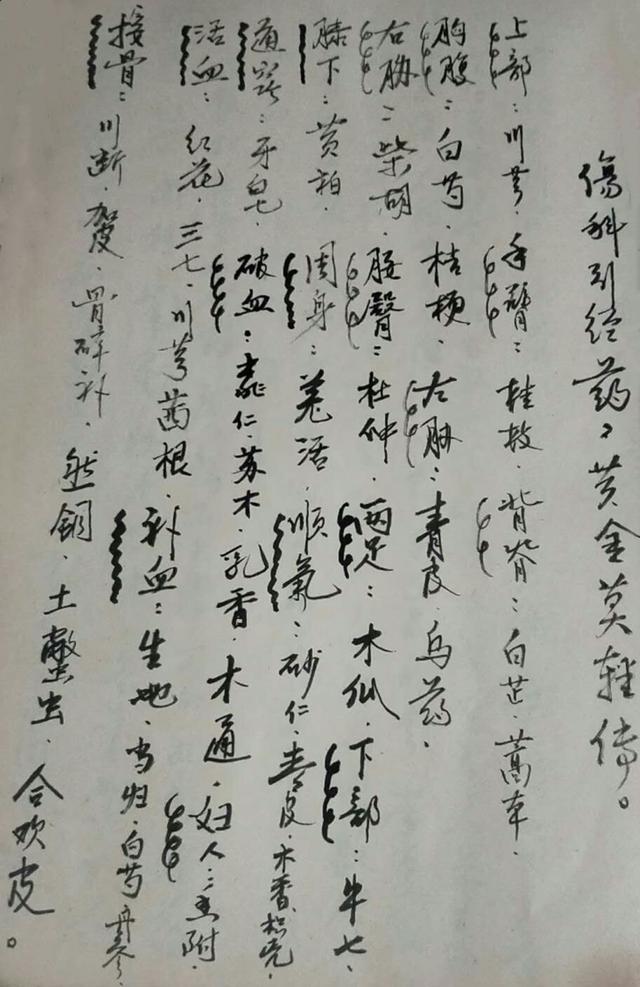 傷科引经药，黄金莫轻传。
上部：川芎．手臂：桂枝．背脊：白芷．藁本．
胸腹：白芍．桔梗．左胁：青皮．乌药．
右胁：柴胡．腰臀：杜仲．两足：木瓜．下部：牛七．
膝下：黄柏．周身：羌活．順氣：砂仁．青皮．木香．枳壳．
通窍：牙皂．破血：桃仁．苏木．乳香．木通．妇人：香附．
活血：红花．三七．川芎．茜根．补血：生地．当归．白芍．丹参．
接骨：川断．加皮．骨碎补．然铜．土鳖虫．合欢皮。